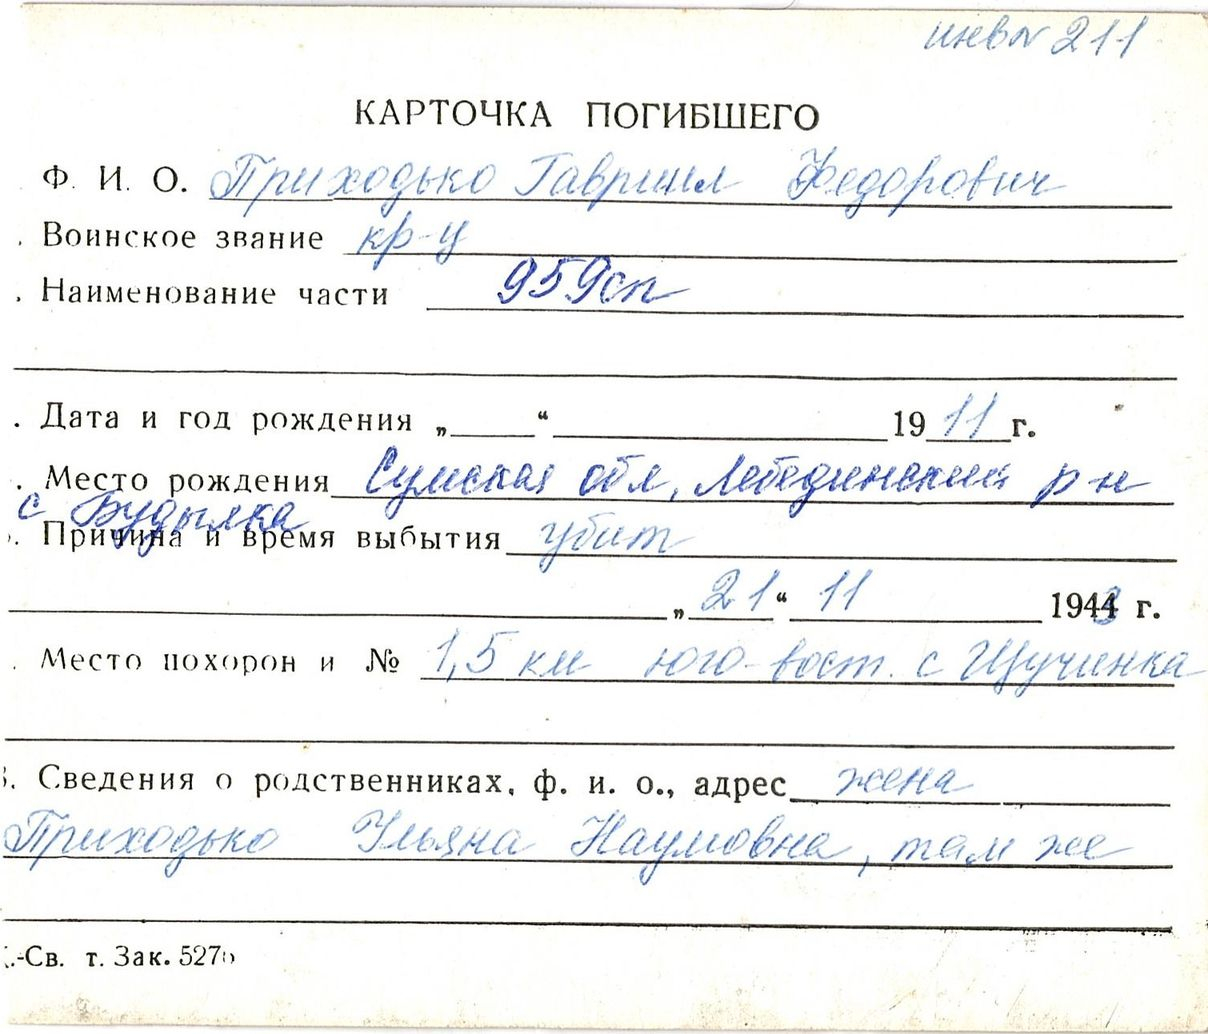 инв № 211
КАРТОЧКА ПОГИБШЕГО
Ф. И. О. Приходько Гавриил Федорович
Воинское звание кр-ц
Наименование части 959сп
Дата и год рождения „ “ 1911 г.
Место рождения Сумская обл, Лебединский р-н
с Будылка
Причина и время выбытия убит
„21“ 11 1943 г.
Место похорон и № 1,5 км юго-вост. с Щучинка
3. Сведения о родственниках, ф. и. о., адрес жена
Приходько Ульяна Наумовна, там же
-Св. т. Зак. 527